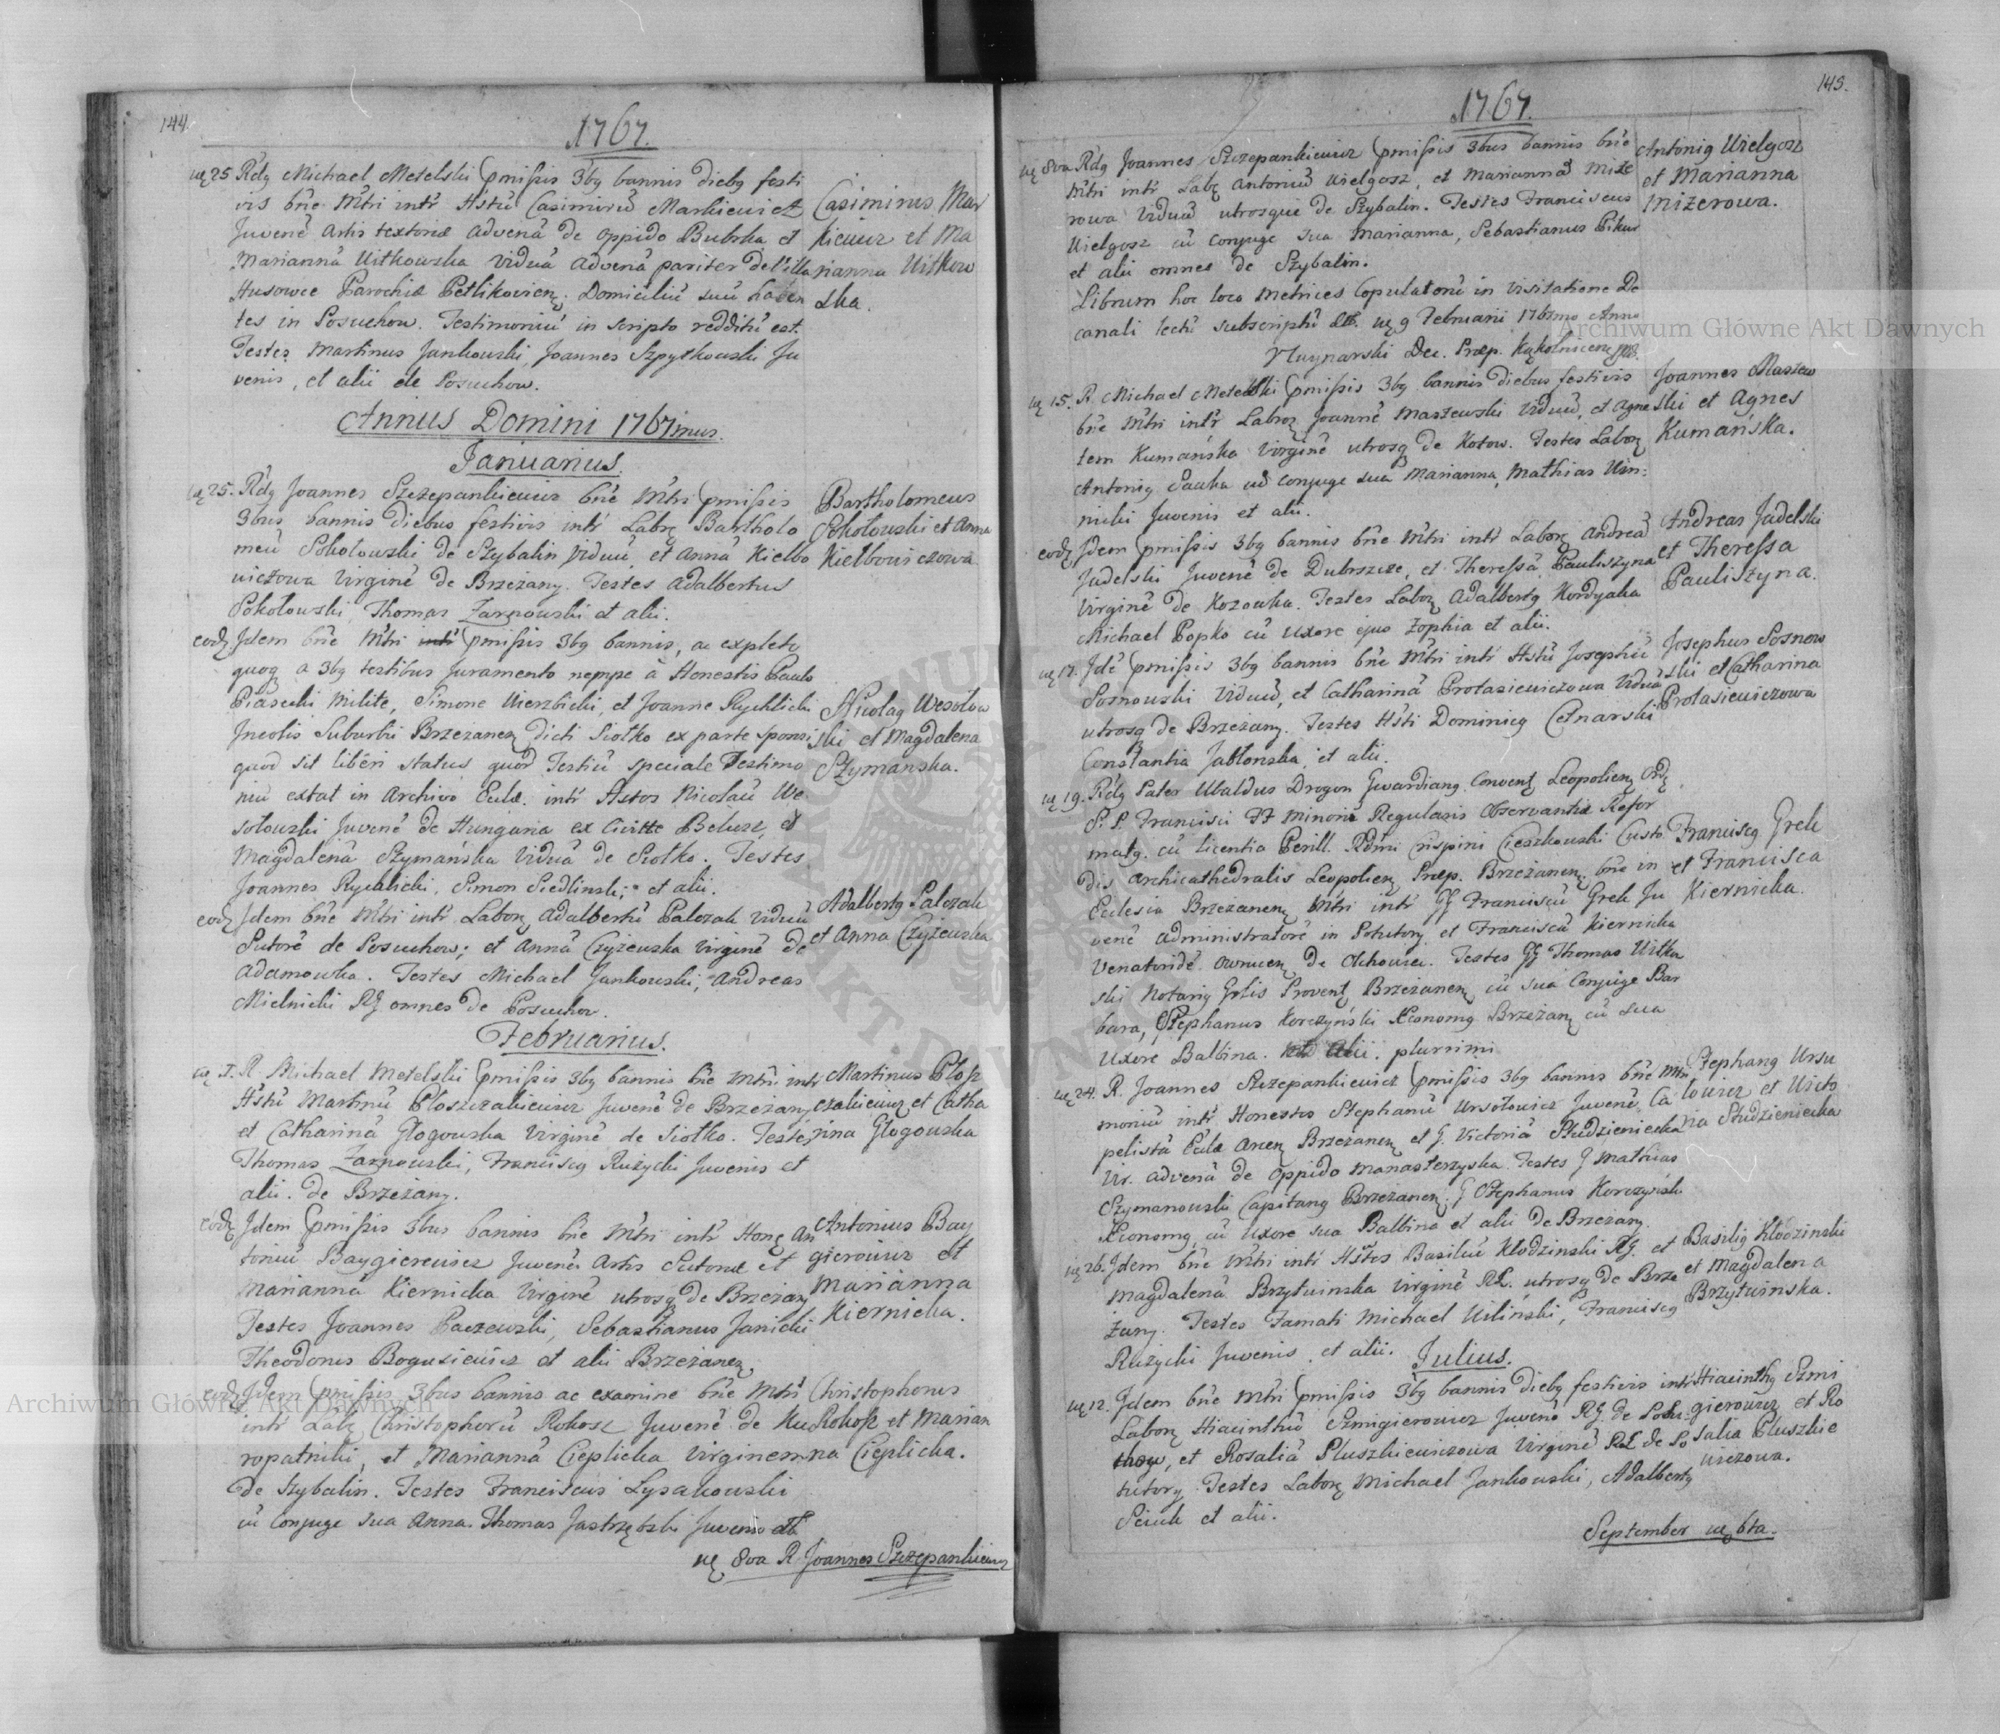 144.
1767.
uę 25 Rdg Michael Metelski pmissis 3bg bannis diebg festi
vis bñe Mtri intr Hstũ Casimirũ Markiewicz
Juvenẽ Artis textoriæ advenã de oppido Bubrka et
Mariannã Witkowska viduã advenã pariter de Villa
Husowce Parochiæ Petlikovienę. Domiciliũ suũ haben
tes in Posuchow. Testimoniũ in scripto redditũ est.
Testes Martinus Jankowski, Joannes Szpytkowski Ju
venis, et alii de Posuchow.
Casimirus Mar
kiewicz et Ma
rianna Witkow
ska.
Annus Domini 1767mus.
Januarius.
uę 25. Rdg Joannes Szczepankiewicz bñe Mtri pmissis
3bus bannis diebus festivis intr Labrę Bartholo
meũ Sokołowski de Szybalin viduũ, et Annã Kiełbo
wiczowa Virginẽ de Brzeżany. Testes Adalbertus
Sokołowski, Thomas Zarnowski et alii.
Bartholomeus
Sokołowski et Anna
Kiełbowiczowa
eodę Jdem bñe Mtri intr pmissis 3bg bannis, ac expleto
quoq a 3bg testibus juramento nempe à Honestis Paulo
Piasecki Milite, Simone Wierzbicki, et Joanne Rychlicki
Jncolis Suburbii Brzezanenę dicti Siołko ex parte sponsi
quod sit liberi status quod Testiũ speciale Testimo
niũ extat in Archivo Eccłæ. intr Hstos Nicolaũ We
sołowski Juvenẽ de Hungaria ex Civitte Belusz, et
Magdalenã Szymańska Viduã de Siołko. Testes
Joannes Rychlicki, Simon Siedlinski, et alii.
Nicolag Wesołow
ski et Magdalena
Szymanska.
eodę Jdem bñe Mtri intr Laborę Adalbertũ Palczak Viduũ
Sutorẽ de Posuchow; et Annã Czyżewska Virginẽ de
Adamowka. Testes Michael Jankowski, Andreas
Mielnicki RG omnes de Posuchow.
Adalbertg Palczak
et Anna Czyżewska
Februarius.
uę 1. R. Michael Metelski pmissis 3bg bannis bñe Mtri intr
Hstũ Martinũ Płoszczakiewicz Juvenẽ de Brzeżany
et Catharinã Głogowska Virginẽ de Siołko. Testes
Thomas Zarnowski, Franciscg Rużycki Juvenis et
alii. de Brzeżany.
Martinus Płosz
czakiewicz et Catha
rina Głogowska
eodę Jdem pmissis 3bus bannis bñe Mtri intr Honę An
toniũ Baygierowicz Juvenẽ Artis Sutoriæ et
Mariannã Kiernicka Virginẽ utrosq de Brzeżany
Testes Joannes Paczewski, Sebastianus Janicki
Theodorus Bogusiewicz et alii Brzeżanenę.
Antonius Bay
gierowicz et
Marianna
Kiernicka.
eodę Jdem pmissis 3bus bannis ac examine bñe Mtri
intr Labę Christophorũ Rokosz Juvenẽ de Ku
ropatniki, et Mariannã Cieplicka Virginem
de Szybalin. Testes Franciscus Lysakowski
cũ Conjuge sua Anna. Thomas Jastrzębski Juvenis
Christophorus
Rokosz et Marian
na Cieplicka.
uę 8va R. Joannes Szczepankiewicz
145.
1767.
uę 8va Rdg Joannes Szczepankiewicz pmissis 3bus bannis bñe
Mtri intr Labę Antoniũ Wielgosz, et Mariannã Mize
rowa Viduã utrosque de Szybalin. Testes Franciscus
Wielgosz cũ Conjuge sua Marianna, Sebastianus Pikus
et alii omnes de Szybalin.
Antonig Wielgosz
et Marianna
Mizerowa.
Librum hoc loco Metrices Copulatorũ in visitatione De
canali lectũ subscriptũ uę 9 Februarii 1767mo Anno
Dec. Præp. Kąkolnicenę
uę 15. R. Michael Metelski pmissis 3bg bannis diebus festivis
bñe Mtri intr Laborę Joannẽ Maszewski Viduũ, et Agne
tem Kumańska Virginẽ utrosq de Kotow. Testes Laborę
Antonig Sawka cũ Conjuge sua Marianna, Mathias Win:
nicki Juvenis et alii.
Joannes Maszew
ski et Agnes
Kumańska.
eodę Jdem pmissis 3bg bannis bñe Mtri intr Laborę Andreã
Judelski Juvenẽ de Dubszcze, et Theressã Pauliszyna
Virginẽ de Kozowka. Testes Laborę Adalbertg Kordyaka
Michael Popko cũ Uxore ejus Zophia et alii.
Andreas Judelski
et Theressa
Pauliszyna.
uę 17. Jdẽ pmissis 3bg bannis bñe Mtri intr Hstũ Josephũ
Sosnowski Viduũ, et Catharinã Protasiewiczowa Viduã
utrosq de Brzeżany. Testes Hsti Dominicg Cetnarski
Constantia Jabłonska, et alii.
Josephus Sosnow
ski et Catharina
Protasiewiczowa
uę 19. Rdg Pater Ubaldus Drogon Gwardiang Conventg Leopolienę Ordę
S. P. Francisci FF Minorũ Regularis Observantiæ Refor
matg. cũ licentia Perill. Rdmi Crispini Cieszkowski Custo
dis Archicathedralis Leopolienę Præp. Brzeżanenę. bñe in
Ecclesia Brzeżanenę Mtri intr GG Franciscũ Grek Ju
venẽ Administratorẽ in Potutory, et Franciscã Kiernicka
Venatoridẽ. Testes GG Thomas Witko
ski Notarig Grlis Proventg Brzeżanenę cũ sua Conjuge Bar
bara, Stephanus Korczyński Œconomg Brzeżanę cũ sua
Uxore Balbina. alii. plurimi
Franciscg Grek
et Francisca
Kiernicka.
uę 24. R. Joannes Szczepankiewicz pmissis 3bg bannis bñe Mtri
moniũ intr Honestos Stephanũ Ursołowicz Juvenẽ Ca
pelistã Eccłæ Arcenę Brzeżanenę et G. Victoriã Studzieniecka
Vir. advenã de oppido Manasterzyska. Testes G Mathias
Szymanowski Capitang Brzeżanenę. G Stephanus Korczyński
Œconomg, cũ Uxore sua Balbina et alii de Brzeżany.
Stephang Ursu
łowicz et Victo
ria Studzieniecka
uę 26. Jdem bñe Mtri intr Hstos Basiliũ Kłodzinski RG. et
Magdalenã Brzytwinska Virginẽ RL. utrosq de Brze
żany. Testes Famati Michael Wiliński, Franciscg
Rużycki Juvenis, et alii.
Basilig Kłodzinski
et Magdalena
Brzytwinska.
Julius.
uę 12. Jdem bñe Mtri pmissis 3bg bannis diebg festivis intr
Laborę Hiacinthũ Szmigierowicz Juvenẽ RG. de Posu:
chow, et Rosaliã Pluszkiewiczowa Virginẽ RL de Po
tutory. Testes Laborę Michael Jankowski, Adalbertg
Sciuk et alii.
Hiacinthg Szmi
gierowicz et Ro
salia Pluszkie
wiczowa.
September uę 6ta.
Archiwum Główne Akt Dawnych
Archiwum Główne Akt Dawnych